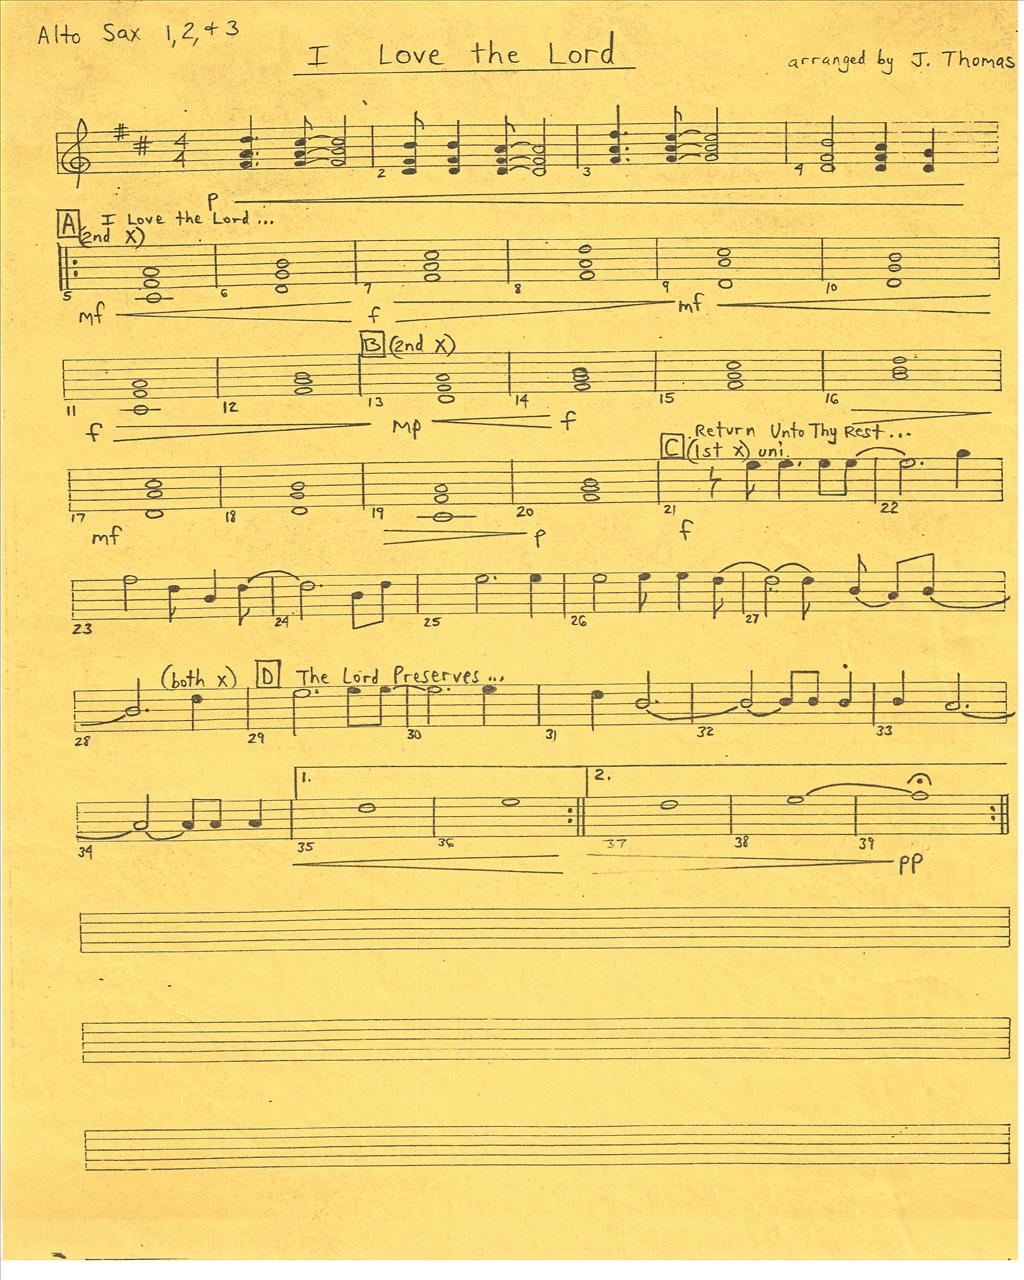 Alto Sax 1, 2, + 3
I Love the Lord
arranged by J. Thomas
4
4
2 3 4
p
A I Love the Lord...
(2nd X)
5 6 7 8 9 10
mf f mf
B (2nd X)
11 12 13 14 15 16
f mp f
Return Unto Thy Rest...
C (1st x) uni.
17 18 19 20 21 22
mf p f
23 24 25 26 27
(both x) D The Lord Preserves...
28 29 30 31 32 33
1. 2.
34 35 36 37 38 39
pp